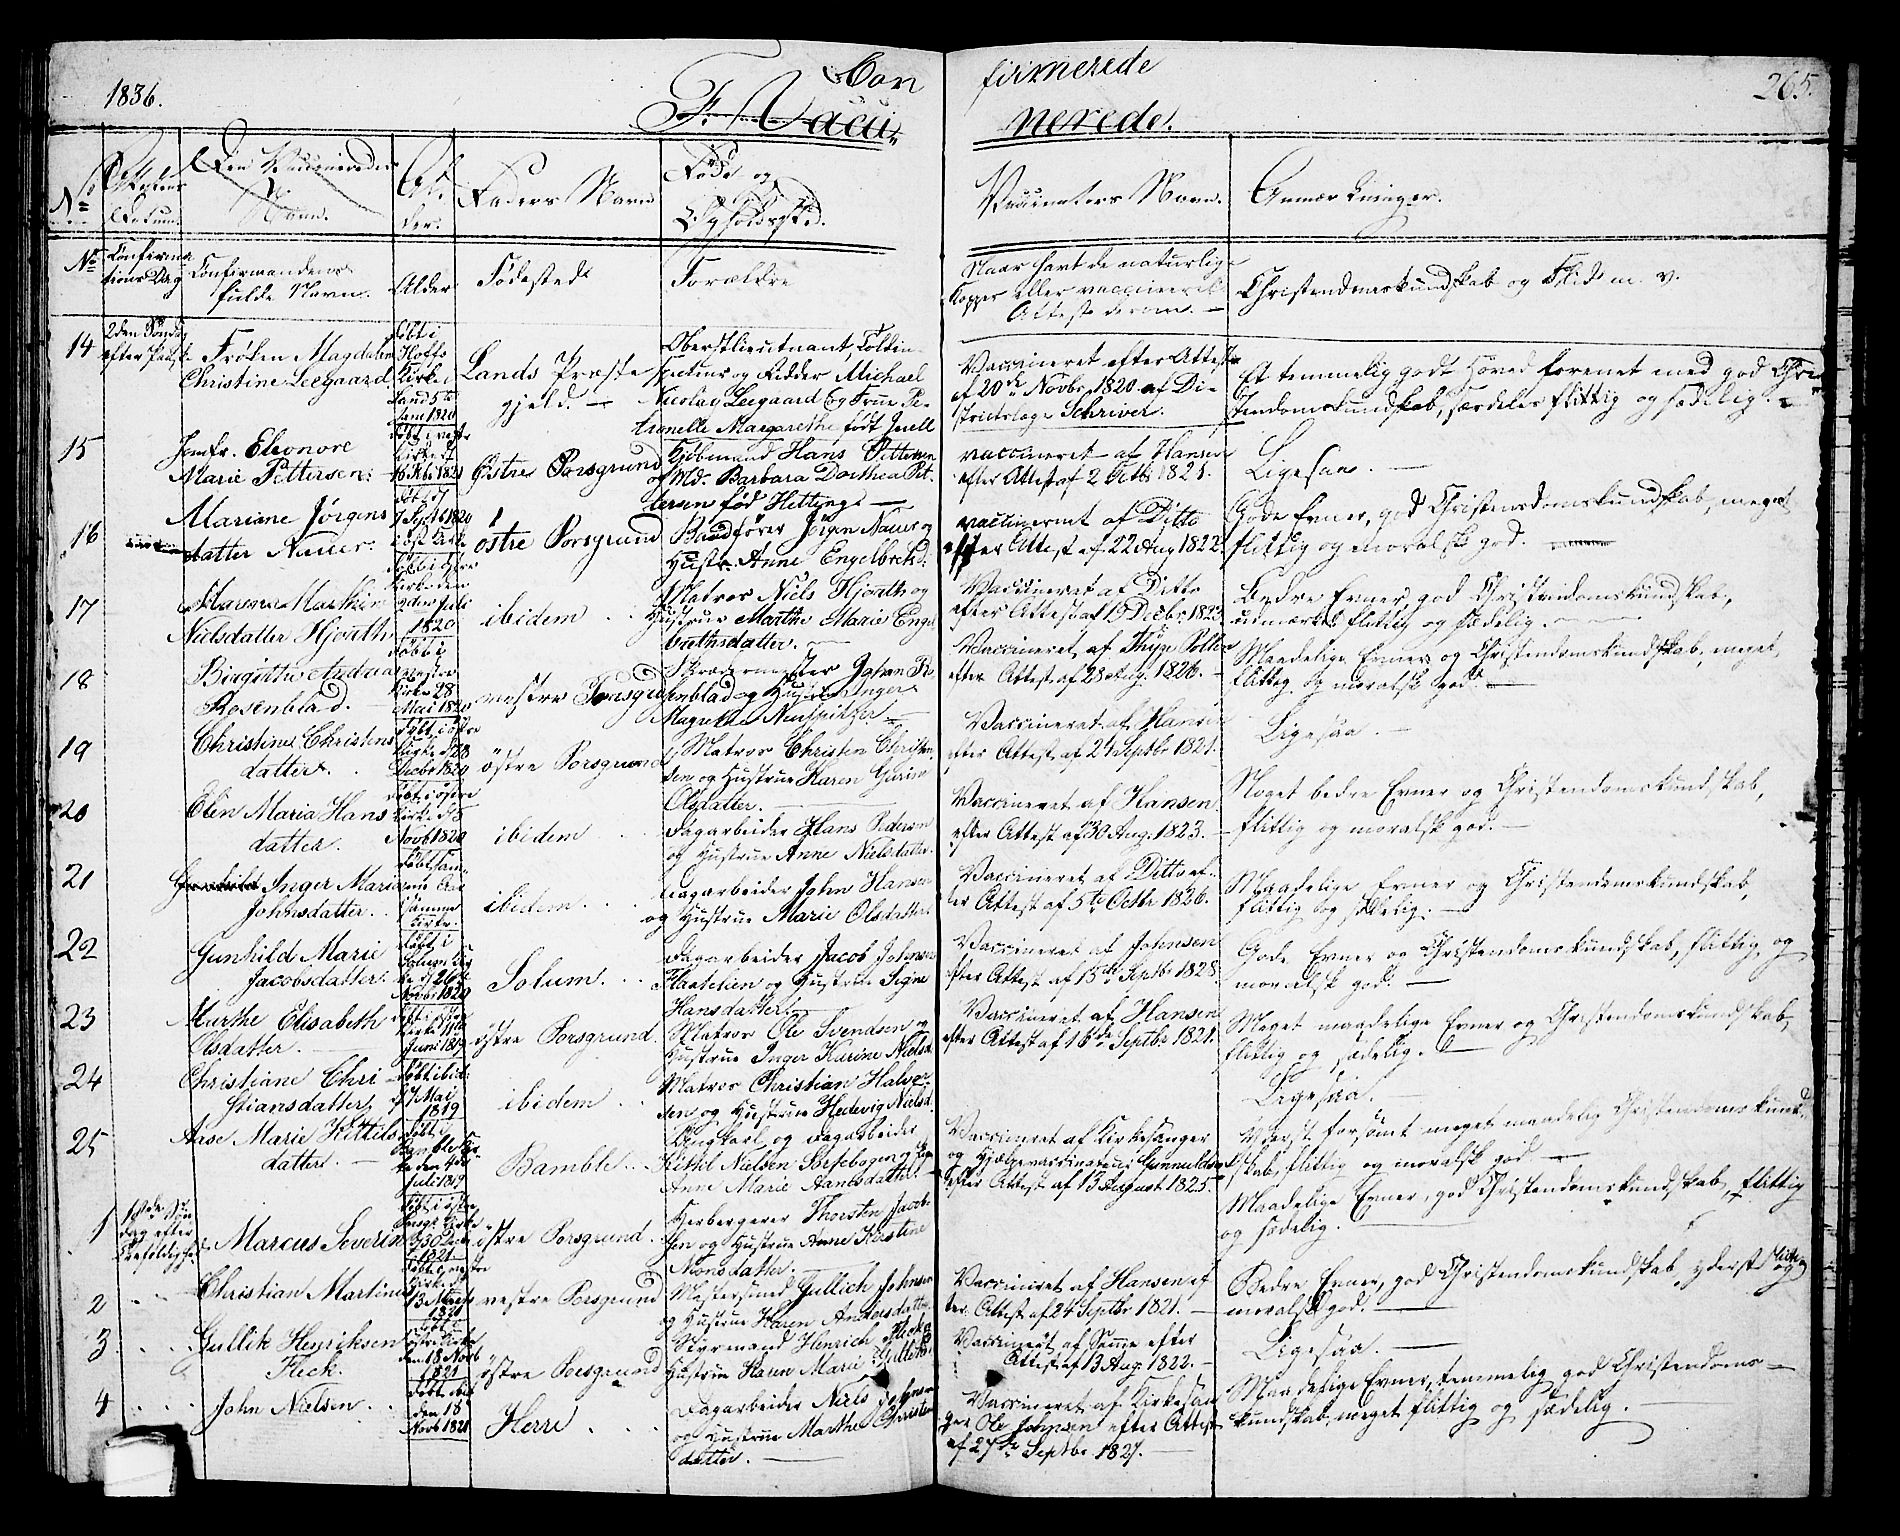 1836.
Con firmerede
265.
F. Vacci nerede.
No
Datum.
Den Vaccineredes Navn.
Alder.
Faders Navn
Føde og Opholdssted.
Vaccinators Navn.
Anmærkninger.
No
Confirmationsdag
Confirmandens fulde Navn.
Alder
Fødested
Forældre
Naar havt de naturlige Kopper eller vaccineret Attest derom.
Christendomskundskab og Flid m. v.
14
2den Sønd: efter Paaske
Frøken Magdalena
Christine Leegaard
født i Hoffs Kirke i Land 5te Jan: 1820
Lands Præstegjeld.
Oberstlieutnant, Toldin-
specteur og Ridder Michael
Nicolay Leegaard og Frue Pe-
tronelle Margarethe født Juell
Vaccineret efter Attest
af 20de Novbr 1820 af Di-
strictslæge Schriver.
Et temmelig godt Hoved forenet med god Chri-
stendomskundskab, særdeles flittig og sædelig.
15
Jomfr. Eleonore
Marie Pettersen.
Østre Porsgrund
Kjöbmand Hans Pettersen
og Md. Barbara Dorthea Pet-
tersen fød Hetting
vaccineret af Hansen
efter Attest af 2 Octb: 1821.
Ligesaa.
16
Mariane Jörgens
datter Nauer.
født 7 Septb 1820 i øst: Kirke
østre Porsgrund
Jörgen Nauer og
Hustr. Anne Engelbretsd.
vaccineret af Ditto
efter Attest af 22 Aug 1822.
Gode Evner, god Christendomskundskab, meget
flittig og moralsk god.
17
Maren Marthine
Nielsdatter Hjorth
født i östre Kirke den 9den Juli 1820
ibidem
Matros Niels Hjorth og
Hustrue Marthe Marie Engel
brethsdatter.
Vaccineret af Ditto
efter Attest af 13 Decbr. 1823.
Bedre Evner, god Christendomskundskab,
udmærket flittig og sædelig.
18
Birgitthe
Rosenblad.
født i vestre Kirke 28 Mai 1820
vestre Porsgrund
Skrædermester Johan Ro-
senblad og Hustrue Inger
Magrethe Neuspitzer
Vaccineret af Thyge
efter Attest af 28 Aug. 1826.
Maadelige Evner og Christendomskundskab, meget
flittig og moralsk god.
19
Christine Christens
datter.
født i østre Kirke d. 28 Decbr 1820
östre Porsgrund
Matros Christen Christen-
sen og Hustrue Karen Gurine
Olsdatter.
Vaccineret af Hansen
efter Attest af 21 Septbr 1821.
Ligesaa.
20
Elen Maria Hans
datter.
født i østre Kirke d. 5 Novb 1820
ibidem
Dagarbeider Hans Pedersen
og Hustrue Anne Nielsdatter.
Vaccineret af Hansen
efter Attest af 30 Aug. 1823.
Noget bedre Evner og Christendomskundskab,
flittig og moralsk god.
21
Inger Maria
Johnsdatter.
født samme i samme Kirke
ibidem.
Dagarbeider John Hansen
og Hustrue Marie Olsdatter.
Vaccineret af Ditto ef-
ter Attest af 5te Octbr 1826.
Maadelige Evner og Christendomskundskab,
flittig og sædelig.
22
Gunhild Marie
Jacobsdatter.
født i Solum Kirke d. 26 Novbr 1820
Solum.
Dagarbeider Jacob Johnsen
og Hustrue Signe
Hansdatter.
Vaccineret af Johnsen
efter Attest af 15de Septbr 1828.
Gode Evner og Christendomskundskab, flittig og
moralsk god.
23
Marthe Elisabeth
Olsdatter.
født i østre Kirke 11te Juni 1819
östre Porsgrund.
Matros Ole Svendsen og
Hustrue Inger Karine Nielsd.
Vaccineret af Hansen
efter Attest af 16de Septbr 1821.
Meget maadelige Evner og Christendomskundskab,
flittig og sædelig.
24
Christiane Chri-
stiansdatter
født ibid: 7 Mai 1819
ibidem
Matros Christian Halvor-
sen og Hustrue Hedevig Nielsd.
Ligesaa.
25
Aase Marie Kittils
datter.
født i Bamble Kirke den 4de Juli 1819
Bamble.
og Dagarbeider
Kittil Nielsen
Anne Marie
Vaccineret af Kirkesanger
og Hjælpevaccinateur Gunnuldsen
efter Attest af 13 August 1825.
Yderst forsömt meget maadelig Christendomskund-
skab, flittig og moralsk god.
1
Søndag efter Trefoldighed
Marcus Severin
østre Porsgrund
Herbergerer Thorsten Jacob-
sen og Hustrue Anne Kirstine
Monsdatter.
Maadelige Evner, god Christendomskundskab, flittig
og sædelig.
2
Christian Martinus
vestre Porsgrund
Gullich Johnsen
og Hustrue Karen Andersdatter
Vaccineret af Hansen ef-
ter Attest af 24 Septbr 1821.
Bedre Evner, god Christendomskundskab, yderst flittig og
moralsk god.
3
Gullik Henriksen
Fleck.
født i østre Kirke den 18 Novb 1821
östre Porsgrund
Styrmand Henrich Fleck og
Hustrue Karen Marie Gulliksd.
Vaccineret af Samme efter
Attest af 13 Aug. 1822.
Ligesaa.
4
John Nielsen
født ibid den 18 Novb 1821
Herre
Dagarbeider Niels Johnsen
og Hustrue Marthe Christens
datter.
Vaccineret af Kirkesan-
ger Ole Johnsen efter Attest
af 27de Septbr 1827.
Maadelige Evner, temmelig god Christendoms-
kundskab, meget flittig og sædelig.